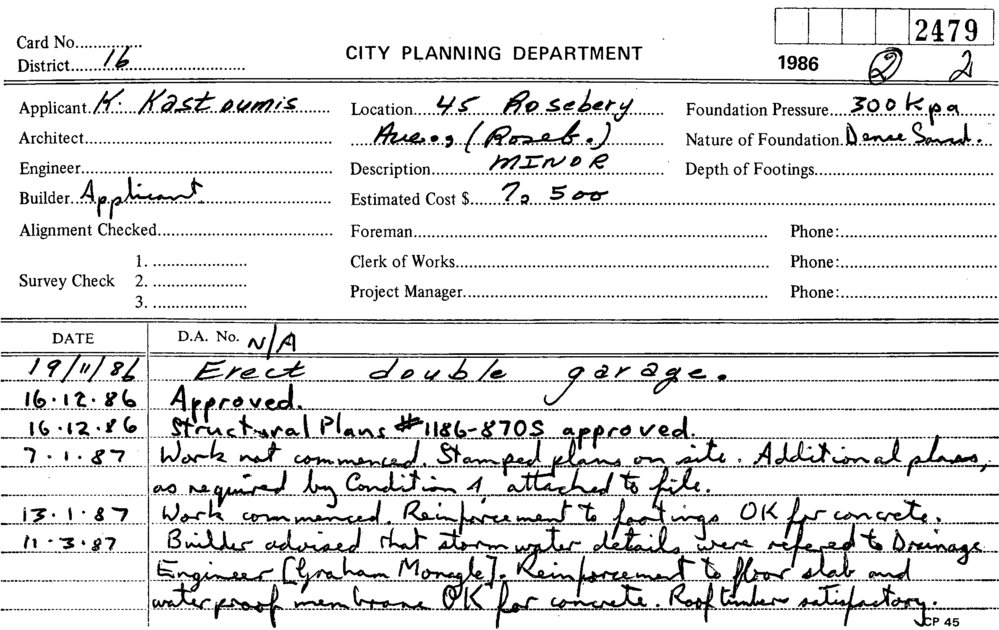 2479
Card No.
CITY PLANNING DEPARTMENT
District 16
1986 2 2
Applicant K. Kastoumis Location 45 Rosebery Foundation Pressure 300 Kpa
Architect Ave., (Roseb.) Nature of Foundation Dense Sand.
Engineer Description MINOR Depth of Footings
Builder Applicant Estimated Cost $ 7, 500
Alignment Checked Foreman Phone:
1. Clerk of Works Phone:
Survey Check 2.
Project Manager Phone:
3.
DATE D.A. No. N/A
19/11/86 Erect double garage.
16.12.86 Approved.
16.12.86 Structural Plans #1186-870S approved.
7.1.87 Work not commenced. Stamped plans on site. Additional plans,
as required by Condition 4, attached to file.
13.1.87 Work commenced. Reinforcement to footings OK for concrete.
11.3.87 Builder advised that stormwater details were refered to Drainage
Engineer [Graham Monagle]. Reinforcement to floor slab and
waterproof membrane OK for concrete. Roof timbers satisfactory.
CP 45